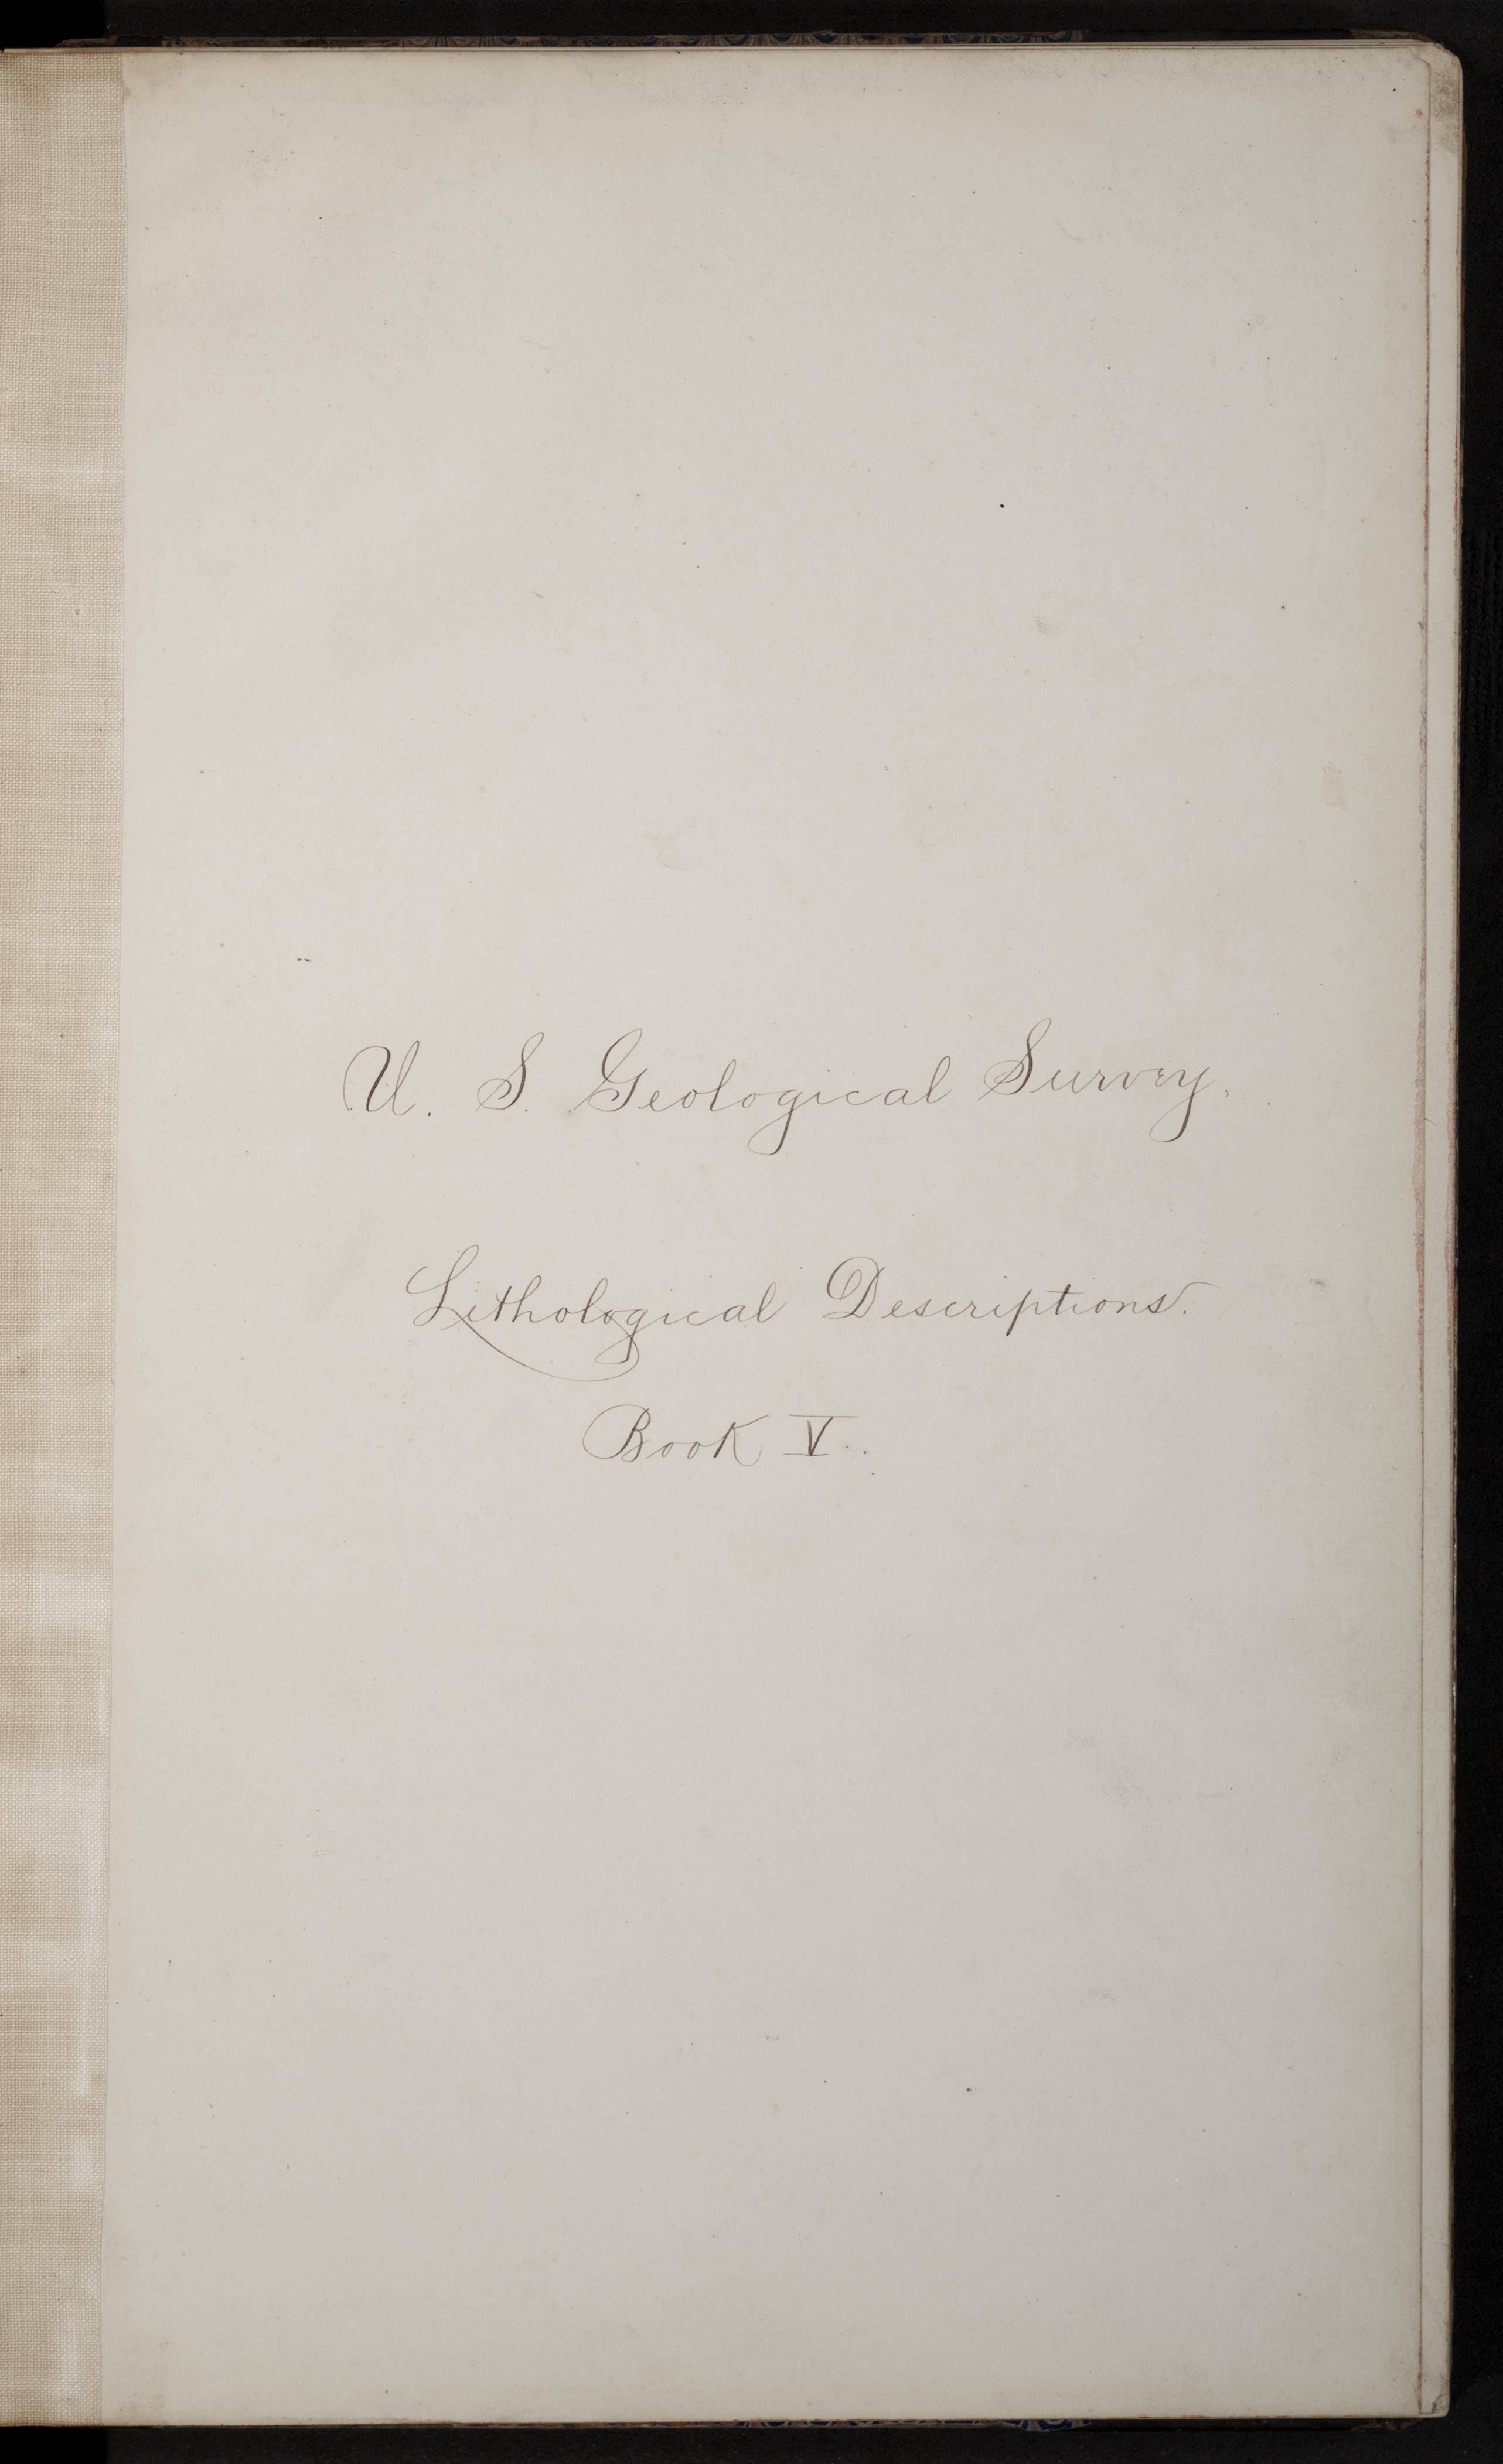 U. S. Geological Survey.
Lithological Descriptions.
Book V.